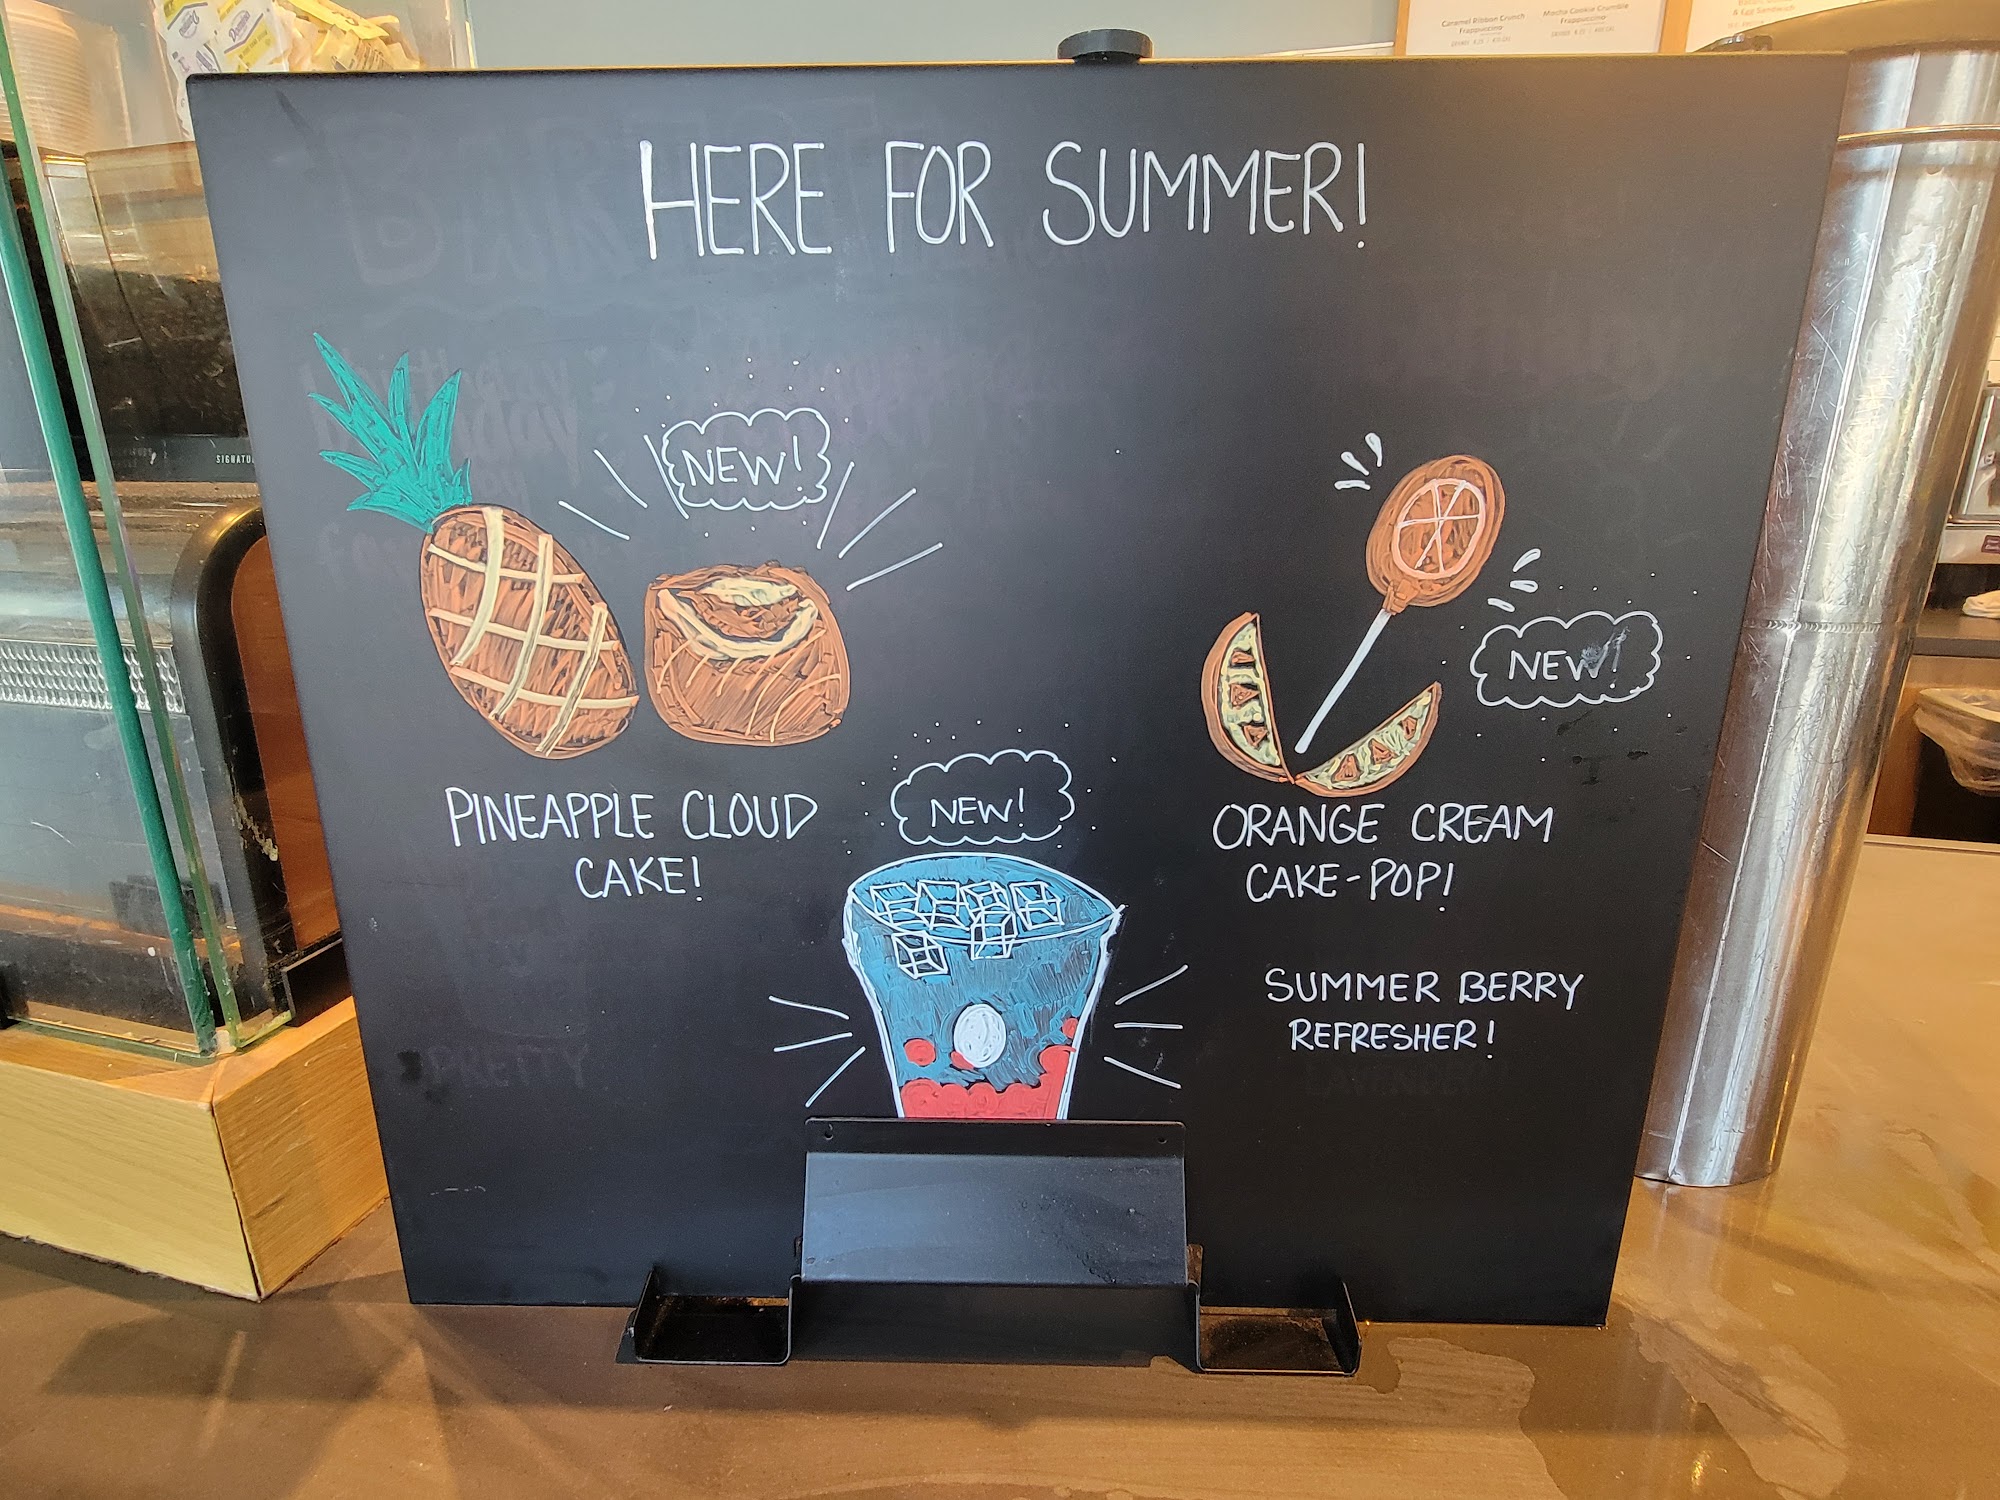 Caramel Ribbon Crunch
Frappuccino
Mocha Cookie Crumble
Frappuccino
& Egg Sandwich
HERE FOR SUMMER!
NEW!
PINEAPPLE CLOUD
CAKE!
NEW!
ORANGE CREAM
CAKE-POP!
NEW!
SUMMER BERRY
REFRESHER!
PRETTY